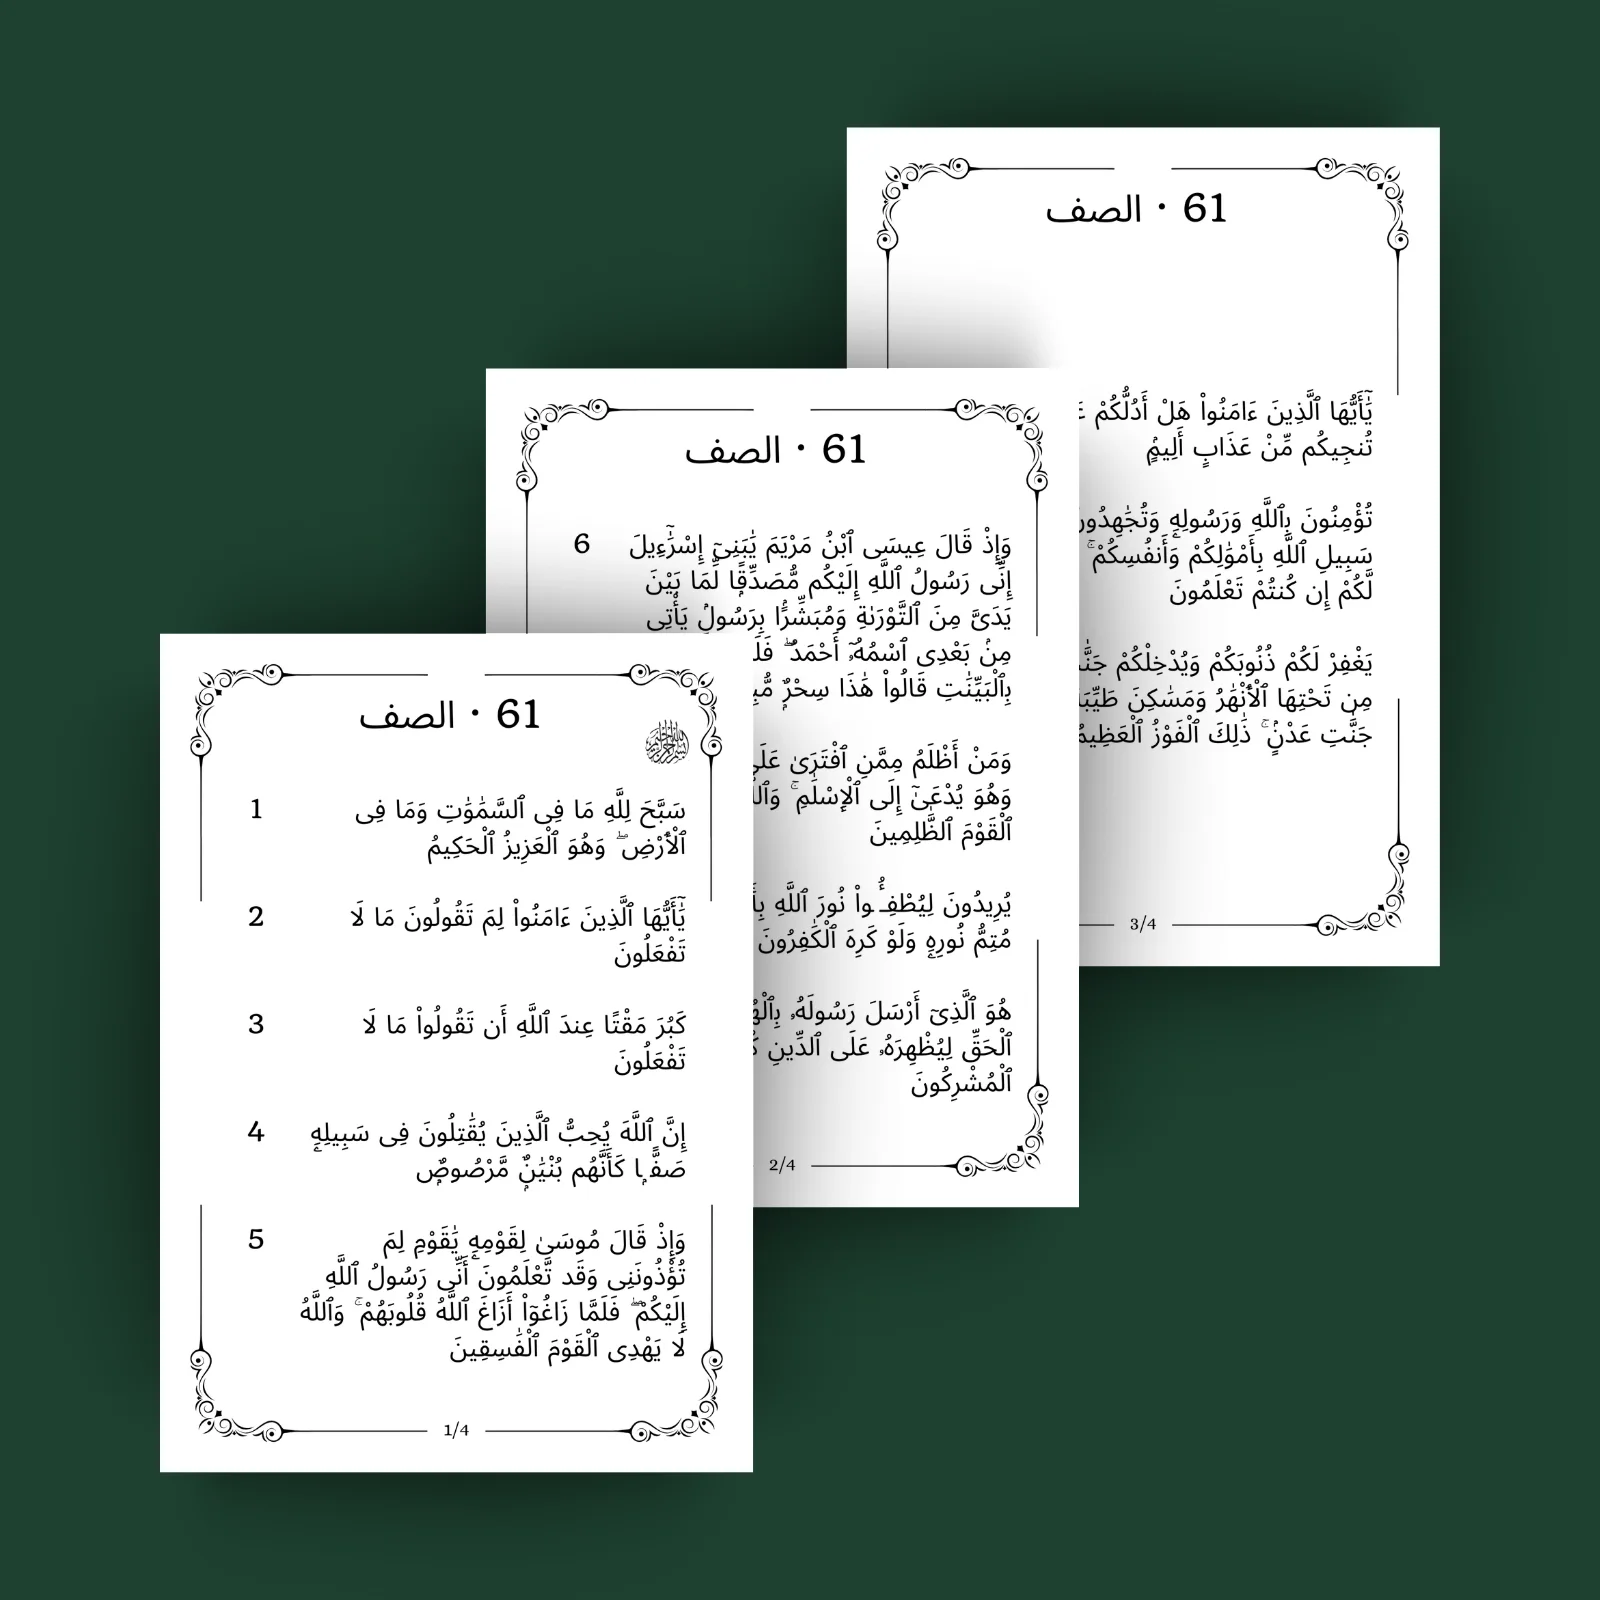 61 · الصف
1 سَبَّحَ لِلَّهِ مَا فِى ٱلسَّمَٰوَٰتِ وَمَا فِى
ٱلْأَرْضِ ۖ وَهُوَ ٱلْعَزِيزُ ٱلْحَكِيمُ
2 يَٰٓأَيُّهَا ٱلَّذِينَ ءَامَنُوا۟ لِمَ تَقُولُونَ مَا لَا
تَفْعَلُونَ
3 كَبُرَ مَقْتًا عِندَ ٱللَّهِ أَن تَقُولُوا۟ مَا لَا
تَفْعَلُونَ
4 إِنَّ ٱللَّهَ يُحِبُّ ٱلَّذِينَ يُقَٰتِلُونَ فِى سَبِيلِهِۦ
صَفًّۭا كَأَنَّهُم بُنْيَٰنٌۭ مَّرْصُوصٌۭ
5 وَإِذْ قَالَ مُوسَىٰ لِقَوْمِهِۦ يَٰقَوْمِ لِمَ
تُؤْذُونَنِى وَقَد تَّعْلَمُونَ أَنِّى رَسُولُ ٱللَّهِ
إِلَيْكُمْ ۖ فَلَمَّا زَاغُوٓا۟ أَزَاغَ ٱللَّهُ قُلُوبَهُمْ ۚ وَٱللَّهُ
لَا يَهْدِى ٱلْقَوْمَ ٱلْفَٰسِقِينَ
1/4
61 · الصف
6 وَإِذْ قَالَ عِيسَى ٱبْنُ مَرْيَمَ يَٰبَنِىٓ إِسْرَٰٓءِيلَ
إِنِّى رَسُولُ ٱللَّهِ إِلَيْكُم مُّصَدِّقًۭا لِّمَا بَيْنَ
يَدَىَّ مِنَ ٱلتَّوْرَىٰةِ وَمُبَشِّرًۢا بِرَسُولٍۢ يَأْتِى
مِنۢ بَعْدِى ٱسْمُهُۥٓ أَحْمَدُ ۖ
بِٱلْبَيِّنَٰتِ قَالُوا۟ هَٰذَا سِحْرٌۭ
وَمَنْ أَظْلَمُ مِمَّنِ ٱفْتَرَىٰ
وَهُوَ يُدْعَىٰٓ إِلَى ٱلْإِسْلَٰمِ ۚ
ٱلْقَوْمَ ٱلظَّٰلِمِينَ
يُرِيدُونَ لِيُطْفِـُٔوا۟ نُورَ ٱللَّهِ
مُتِمُّ نُورِهِۦ وَلَوْ كَرِهَ ٱلْكَٰفِرُونَ
هُوَ ٱلَّذِىٓ أَرْسَلَ رَسُولَهُۥ
ٱلْحَقِّ لِيُظْهِرَهُۥ عَلَى ٱلدِّينِ
ٱلْمُشْرِكُونَ
2/4
61 · الصف
يَٰٓأَيُّهَا ٱلَّذِينَ ءَامَنُوا۟ هَلْ أَدُلُّكُمْ
تُنجِيكُم مِّنْ عَذَابٍ أَلِيمٍۢ
تُؤْمِنُونَ بِٱللَّهِ وَرَسُولِهِۦ وَتُجَٰهِدُونَ
سَبِيلِ ٱللَّهِ بِأَمْوَٰلِكُمْ وَأَنفُسِكُمْ ۚ
لَّكُمْ إِن كُنتُمْ تَعْلَمُونَ
يَغْفِرْ لَكُمْ ذُنُوبَكُمْ وَيُدْخِلْكُمْ
مِن تَحْتِهَا ٱلْأَنْهَٰرُ وَمَسَٰكِنَ
جَنَّٰتِ عَدْنٍۢ ۚ ذَٰلِكَ ٱلْفَوْزُ ٱلْعَظِيمُ
3/4